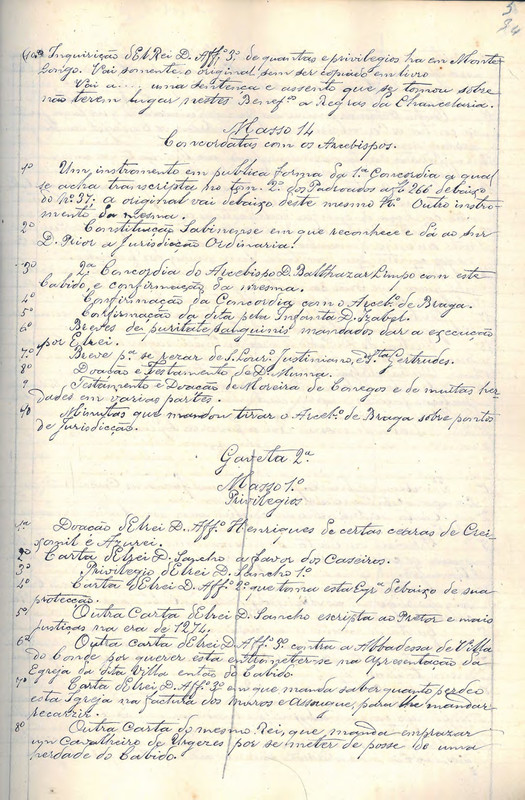 Inquirição d'ElRei D. Aff.º 3º de quantas e privilegios ha em Monte
Longo. Vai somente o original sem ser copiado em livro
Vai a ..., uma sentença e assento que se tomou sobre
não terem lugar nestes Benef.os a Regras da Chancelaria.
Masso 14
Concordatas com os Arcebispos.
1º Um instrumento em publica forma da 1ª Concordia a qual
se acha transcripta no tom. 2º dos Padroados a fl. 266 debaixo
do Nº 37; a original vai debaixo deste mesmo Nº. Outro instro-
mento da mesma.
2º Constituição Sabinense em que reconhece e dá ao Snr
D. Prior a Jurisdicção Ordinaria.
3º 2ª Concordia do Arcebispo D. Balthazar Limpo com este
Cabido, e confirmação da mesma.
4º Confirmação da Concordia com o Arceb.º de Braga.
5º Confirmação da dita pela Infanta D. Izabel.
6º Breves de puritate sanguinis mandados dar a execução
por Elrei.
7º Breve p.ª se rezar de S. Lour.º Justiniano, e S.ta Gertrudes.
8º Doação e Testamento de D. Muma.
9 Testamento e Doação de Moreira de Conegos e de muitas her-
dades em varias partes.
10 Minutas que mandou tirar o Arceb.º de Braga sobre pontos
de Jurisdicção.
Gaveta 2ª
Masso 1º
Privilegios
1º Doação d'Elrei D. Aff.º Henriques de certas searas de Crei-
xomil e Azurei.
2º Carta d'Elrei D. Sancho a favor dos Caseiros.
3º Privilegio d'Elrei D. Sancho 1º
4º Carta d'Elrei D. Aff.º 2º que toma esta Egr.ª debaixo de sua
protecção.
5º Outra Carta d'Elrei D. Sancho escripta ao Pretor e mais
justiças na era de 1274.
6º Outra carta d'Elrei D. Aff.º 3º contra a Abbadessa de Villa
do Conde por querer esta entrometer-se na apresentação da
Egreja da dita Villa então do Cabido.
7º Carta d'Elrei D. Aff.º 3º em que manda saber quanto perdeo
esta Igreja na factura dos muros e Assougue, para lhe mandar
recarzir.
8º Outra Carta do mesmo Rei, que manda emprazar
um Cavalheiro de Urgezes por se meter de posse de uma
herdade do Cabido.